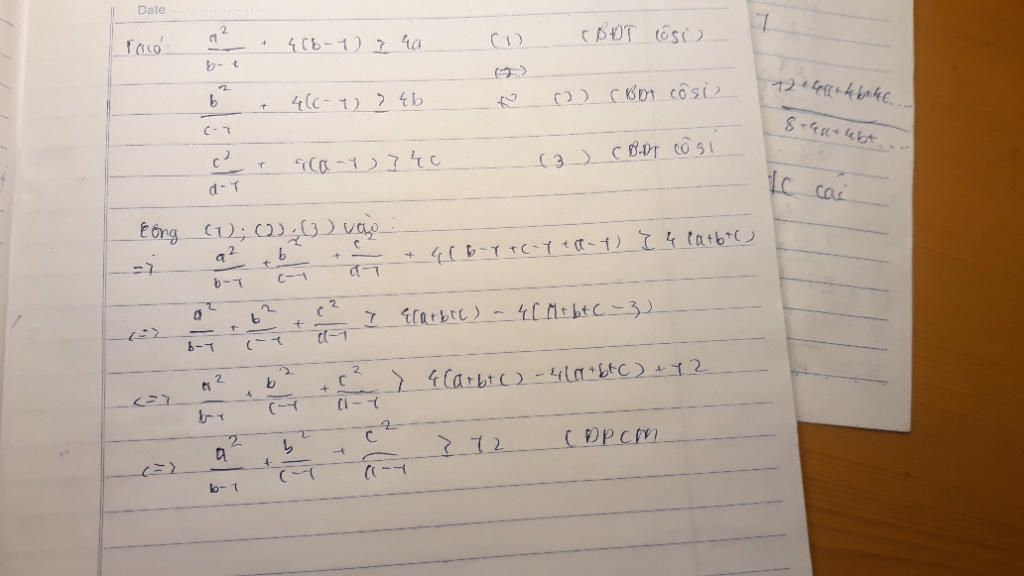 Date
Ta có: a²/(b-1) + 4(b-1) ≥ 4a (1) (BĐT Côsi)
b²/(c-1) + 4(c-1) ≥ 4b (2) (BĐT Côsi)
c²/(a-1) + 4(a-1) ≥ 4c (3) (BĐT Côsi
Cộng (1); (2); (3) vào:
=> a²/(b-1) + b²/(c-1) + c²/(a-1) + 4(b-1+c-1+a-1) ≥ 4(a+b+c)
<=> a²/(b-1) + b²/(c-1) + c²/(a-1) ≥ 4(a+b+c) - 4(a+b+c-3)
<=> a²/(b-1) + b²/(c-1) + c²/(a-1) ≥ 4(a+b+c) - 4(a+b+c) + 12
<=> a²/(b-1) + b²/(c-1) + c²/(a-1) ≥ 12 (ĐPCM)
1
12+4a+4b+4c...
8+4a+4b+...
cái